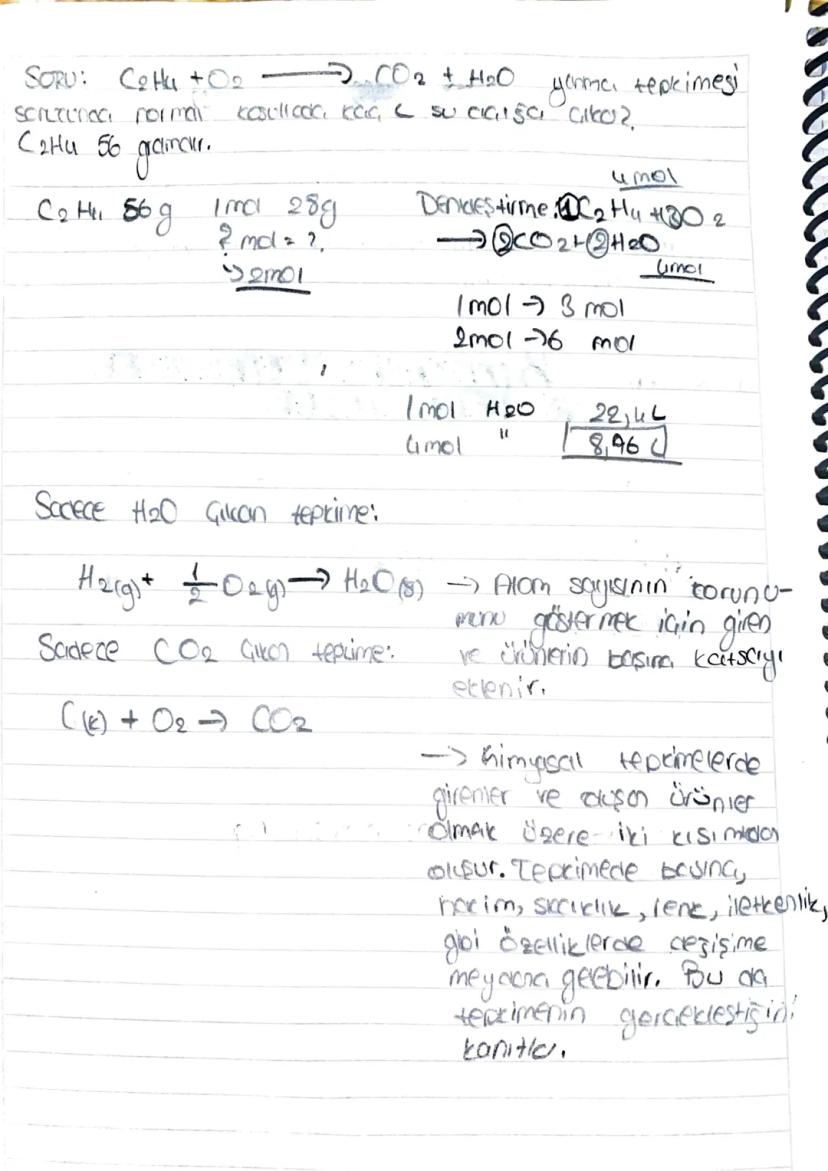 SORU: C2H4 + O2 → CO2 + H2O yanma tepkimesi
sonucunda normal koşullarda kaç L su açığa çıkar?
C2H4 56 gramdır.
4mol
C2H4 56g 1mol 28g Denkleştirme: 1C2H4 + 3O2
? mol = ?
→ 2CO2 + 2H2O
↳ 2mol
4mol
1mol → 3 mol
2mol → 6 mol
1mol H2O 22,4L
4mol " 8,96 L
Sadece H2O çıkan tepkime:
H2(g) + 1/2 O2(g) → H2O(s) → Atom sayısının korunu-
munu göstermek için giren
Sadece CO2 çıkan tepkime: ve ürünlerin başına katsayı
eklenir.
C(k) + O2 → CO2
→ Kimyasal tepkimelerde
girenler ve oluşan ürünler
olmak üzere iki kısımdan
oluşur. Tepkimede basınç,
hacim, sıcaklık, renk, iletkenlik,
gibi özelliklerde değişime
meydana gelebilir. Bu da
tepkimenin gerçekleştiğini
kanıtlar.